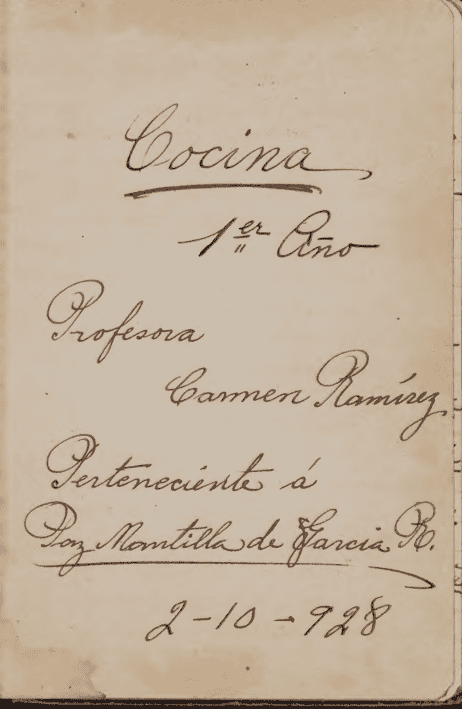 Cocina
1er Año
Profesora
Carmen Ramírez
Perteneciente á
Paz Montilla de Garcia R.
2-10-928